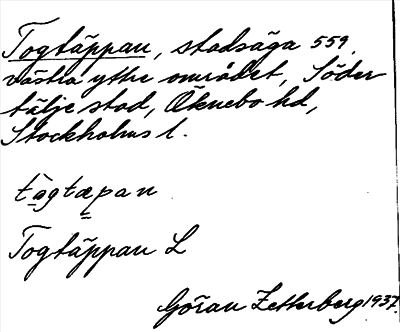 Togtäppan, stadsäga 559,
västra yttre området, Söder
tälje stad, Öknebo hd,
Stockholms l.
tògtæpan
Togtäppan L
Göran Zetterberg 1937.